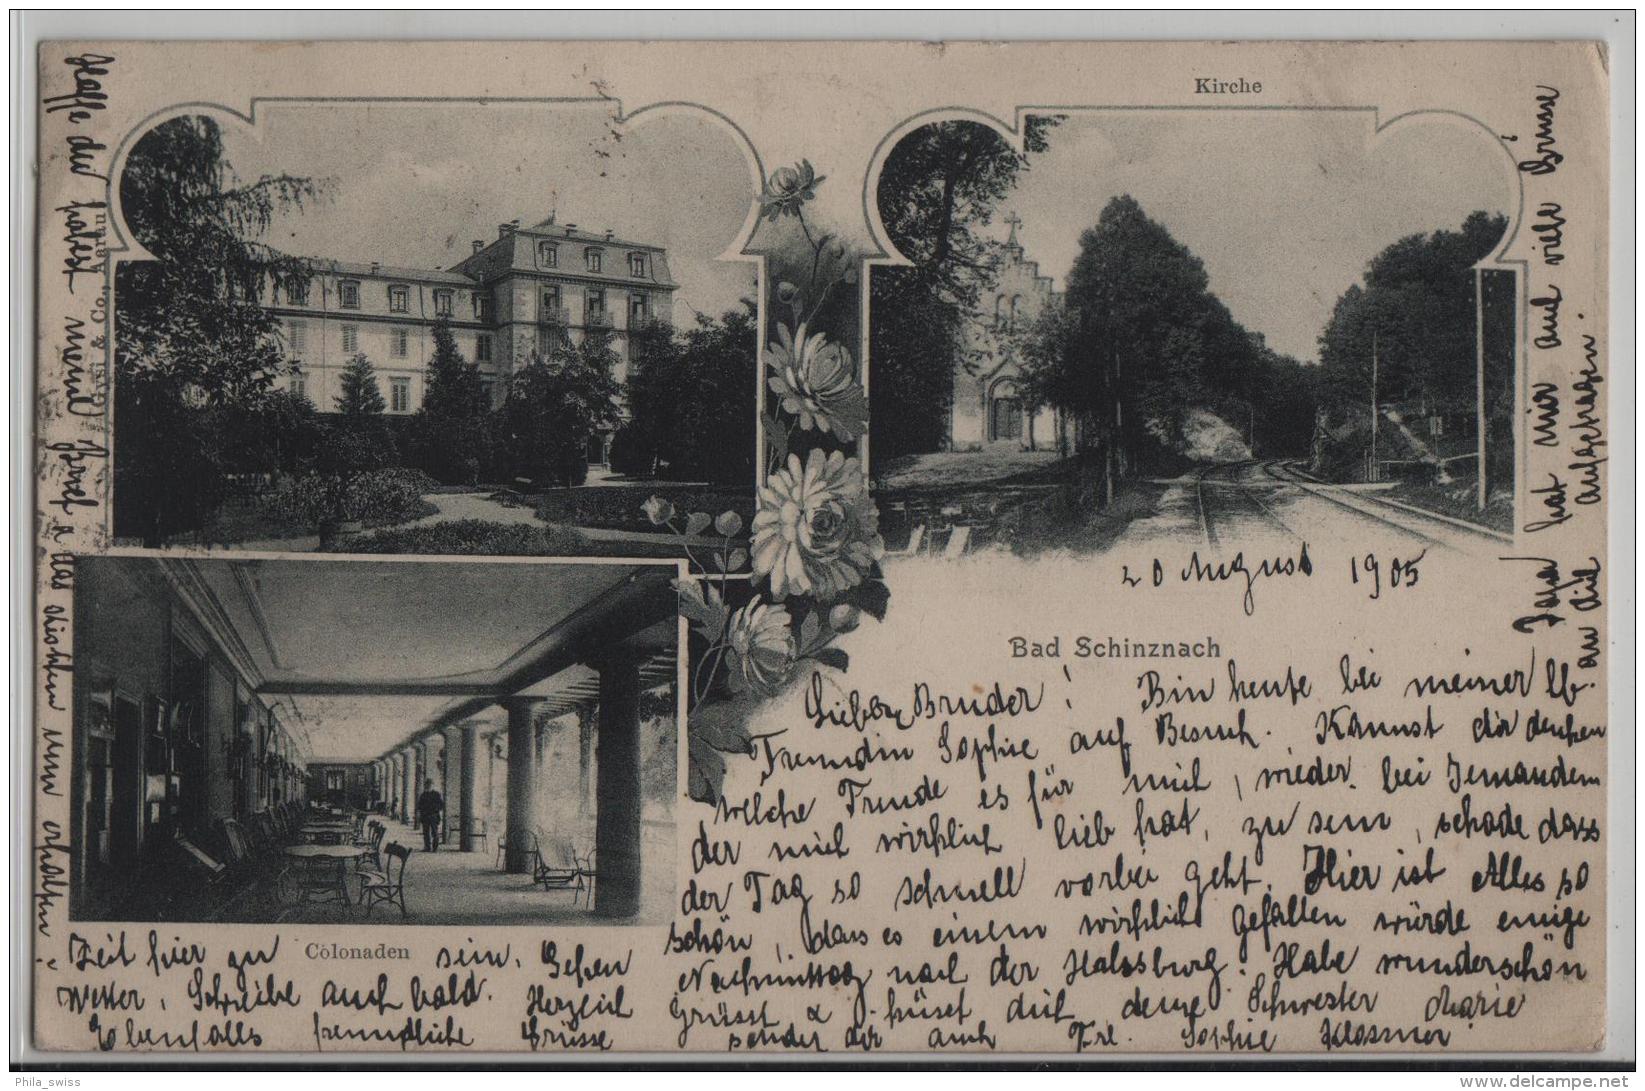 Kirche
20 August 1905
Bad Schinznach
Lieber Bruder! Bin heute bei meiner lb.
Freundin Sophie auf Besuch. Kannst dir denken
welche Freude es für mich, wieder bei Jemandem
der mich wirklich lieb hat, zu sein, schade dass
der Tag so schnell vorbei geht. Hier ist Alles so
schön, dass es einem wirklich gefallen würde einige
Zeit hier zu sein. Gehen
Nachmittag nach der Habsburg. Habe wunderschön
Wetter. Schreibe auch bald. Herzlich
Grüsst & küsst dich deine Schwester Marie
Ebenfalls freundliche Grüsse
sendet dir auch Frl. Sophie
Colonaden
Hoffe du habest meinen Brief &
das nun erhalten.
Gysi & Co., Aarau
hat mir auf viele Grüsse
an die aufgetragen.
Phila_swiss
www.delcampe.net